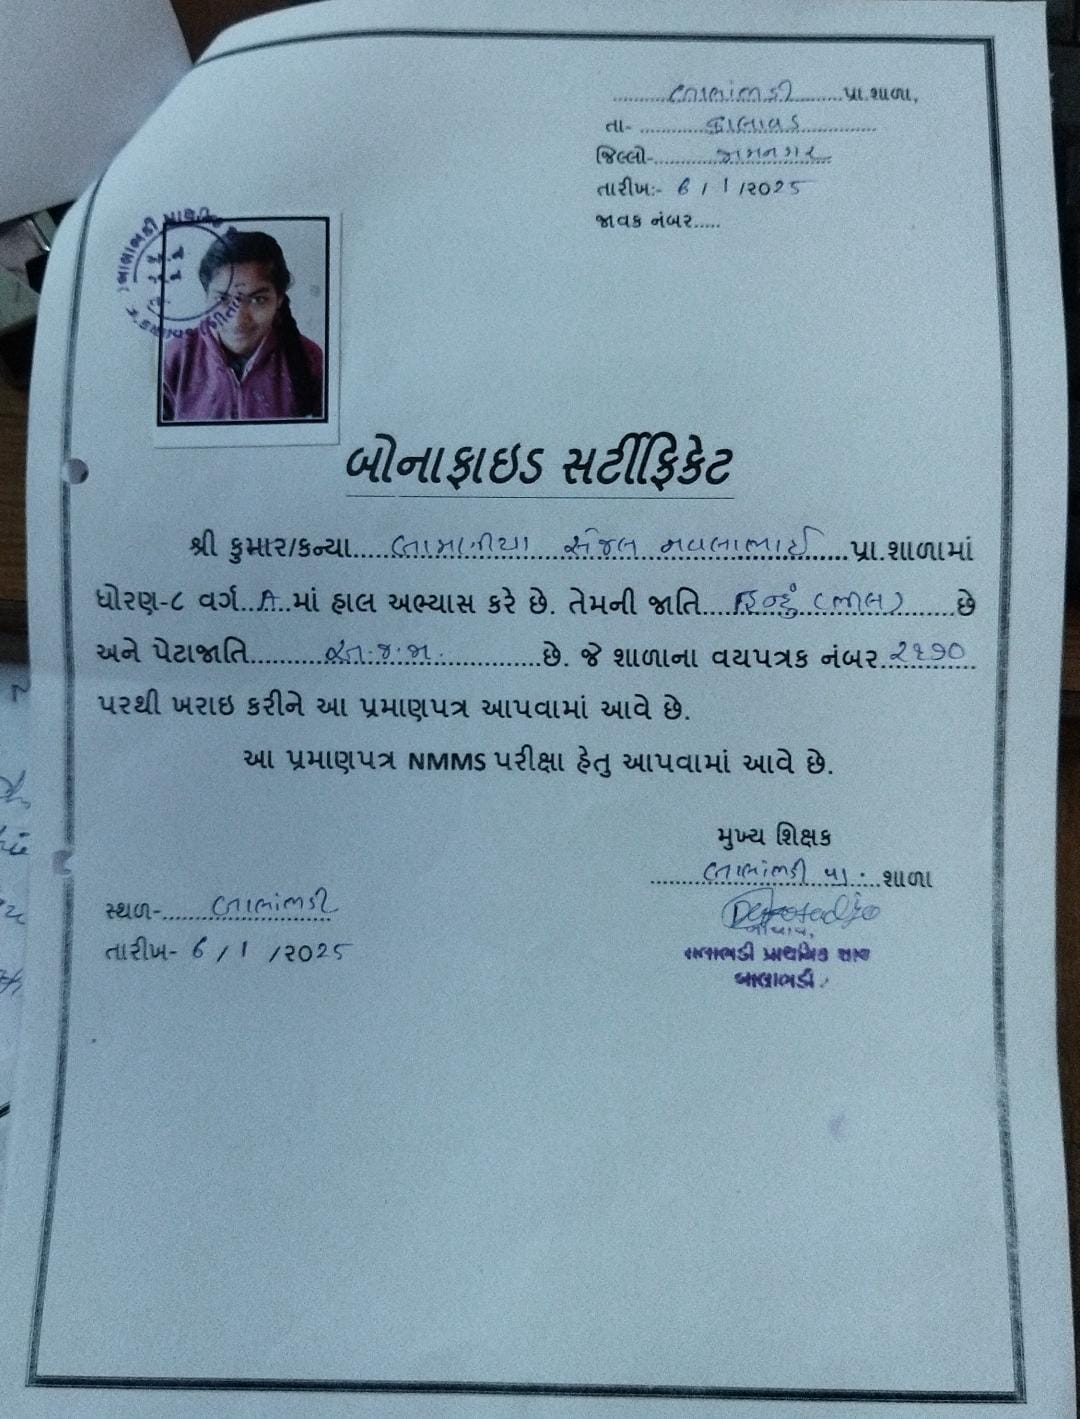 બાલંભડી પ્રા.શાળા,
તા- કાલાવડ
જિલ્લો- જામનગર
તારીખ:- 6 / 1 /2025
જાવક નંબર.....
બોનાફાઇડ સર્ટીફિકેટ
શ્રી કુમાર/કન્યા.... બામાનીયા સેજલ નવલાભાઈ ....પ્રા.શાળામાં
ધોરણ-૮ વર્ગ..A..માં હાલ અભ્યાસ કરે છે. તેમની જાતિ.... હિન્દુ (ભીલ) ....છે
અને પેટાજાતિ.... અ.જ.જા. ....છે. જે શાળાના વયપત્રક નંબર..૨૧૭૦
પરથી ખરાઇ કરીને આ પ્રમાણપત્ર આપવામાં આવે છે.
આ પ્રમાણપત્ર NMMS પરીક્ષા હેતુ આપવામાં આવે છે.
મુખ્ય શિક્ષક
બાલંભડી પ્રા. શાળા
સ્થળ- બાલંભડી
તારીખ- 6 / 1 /2025
આચાર્ય,
બાલાભડી પ્રાથમિક શાળા
બાલાભડી.